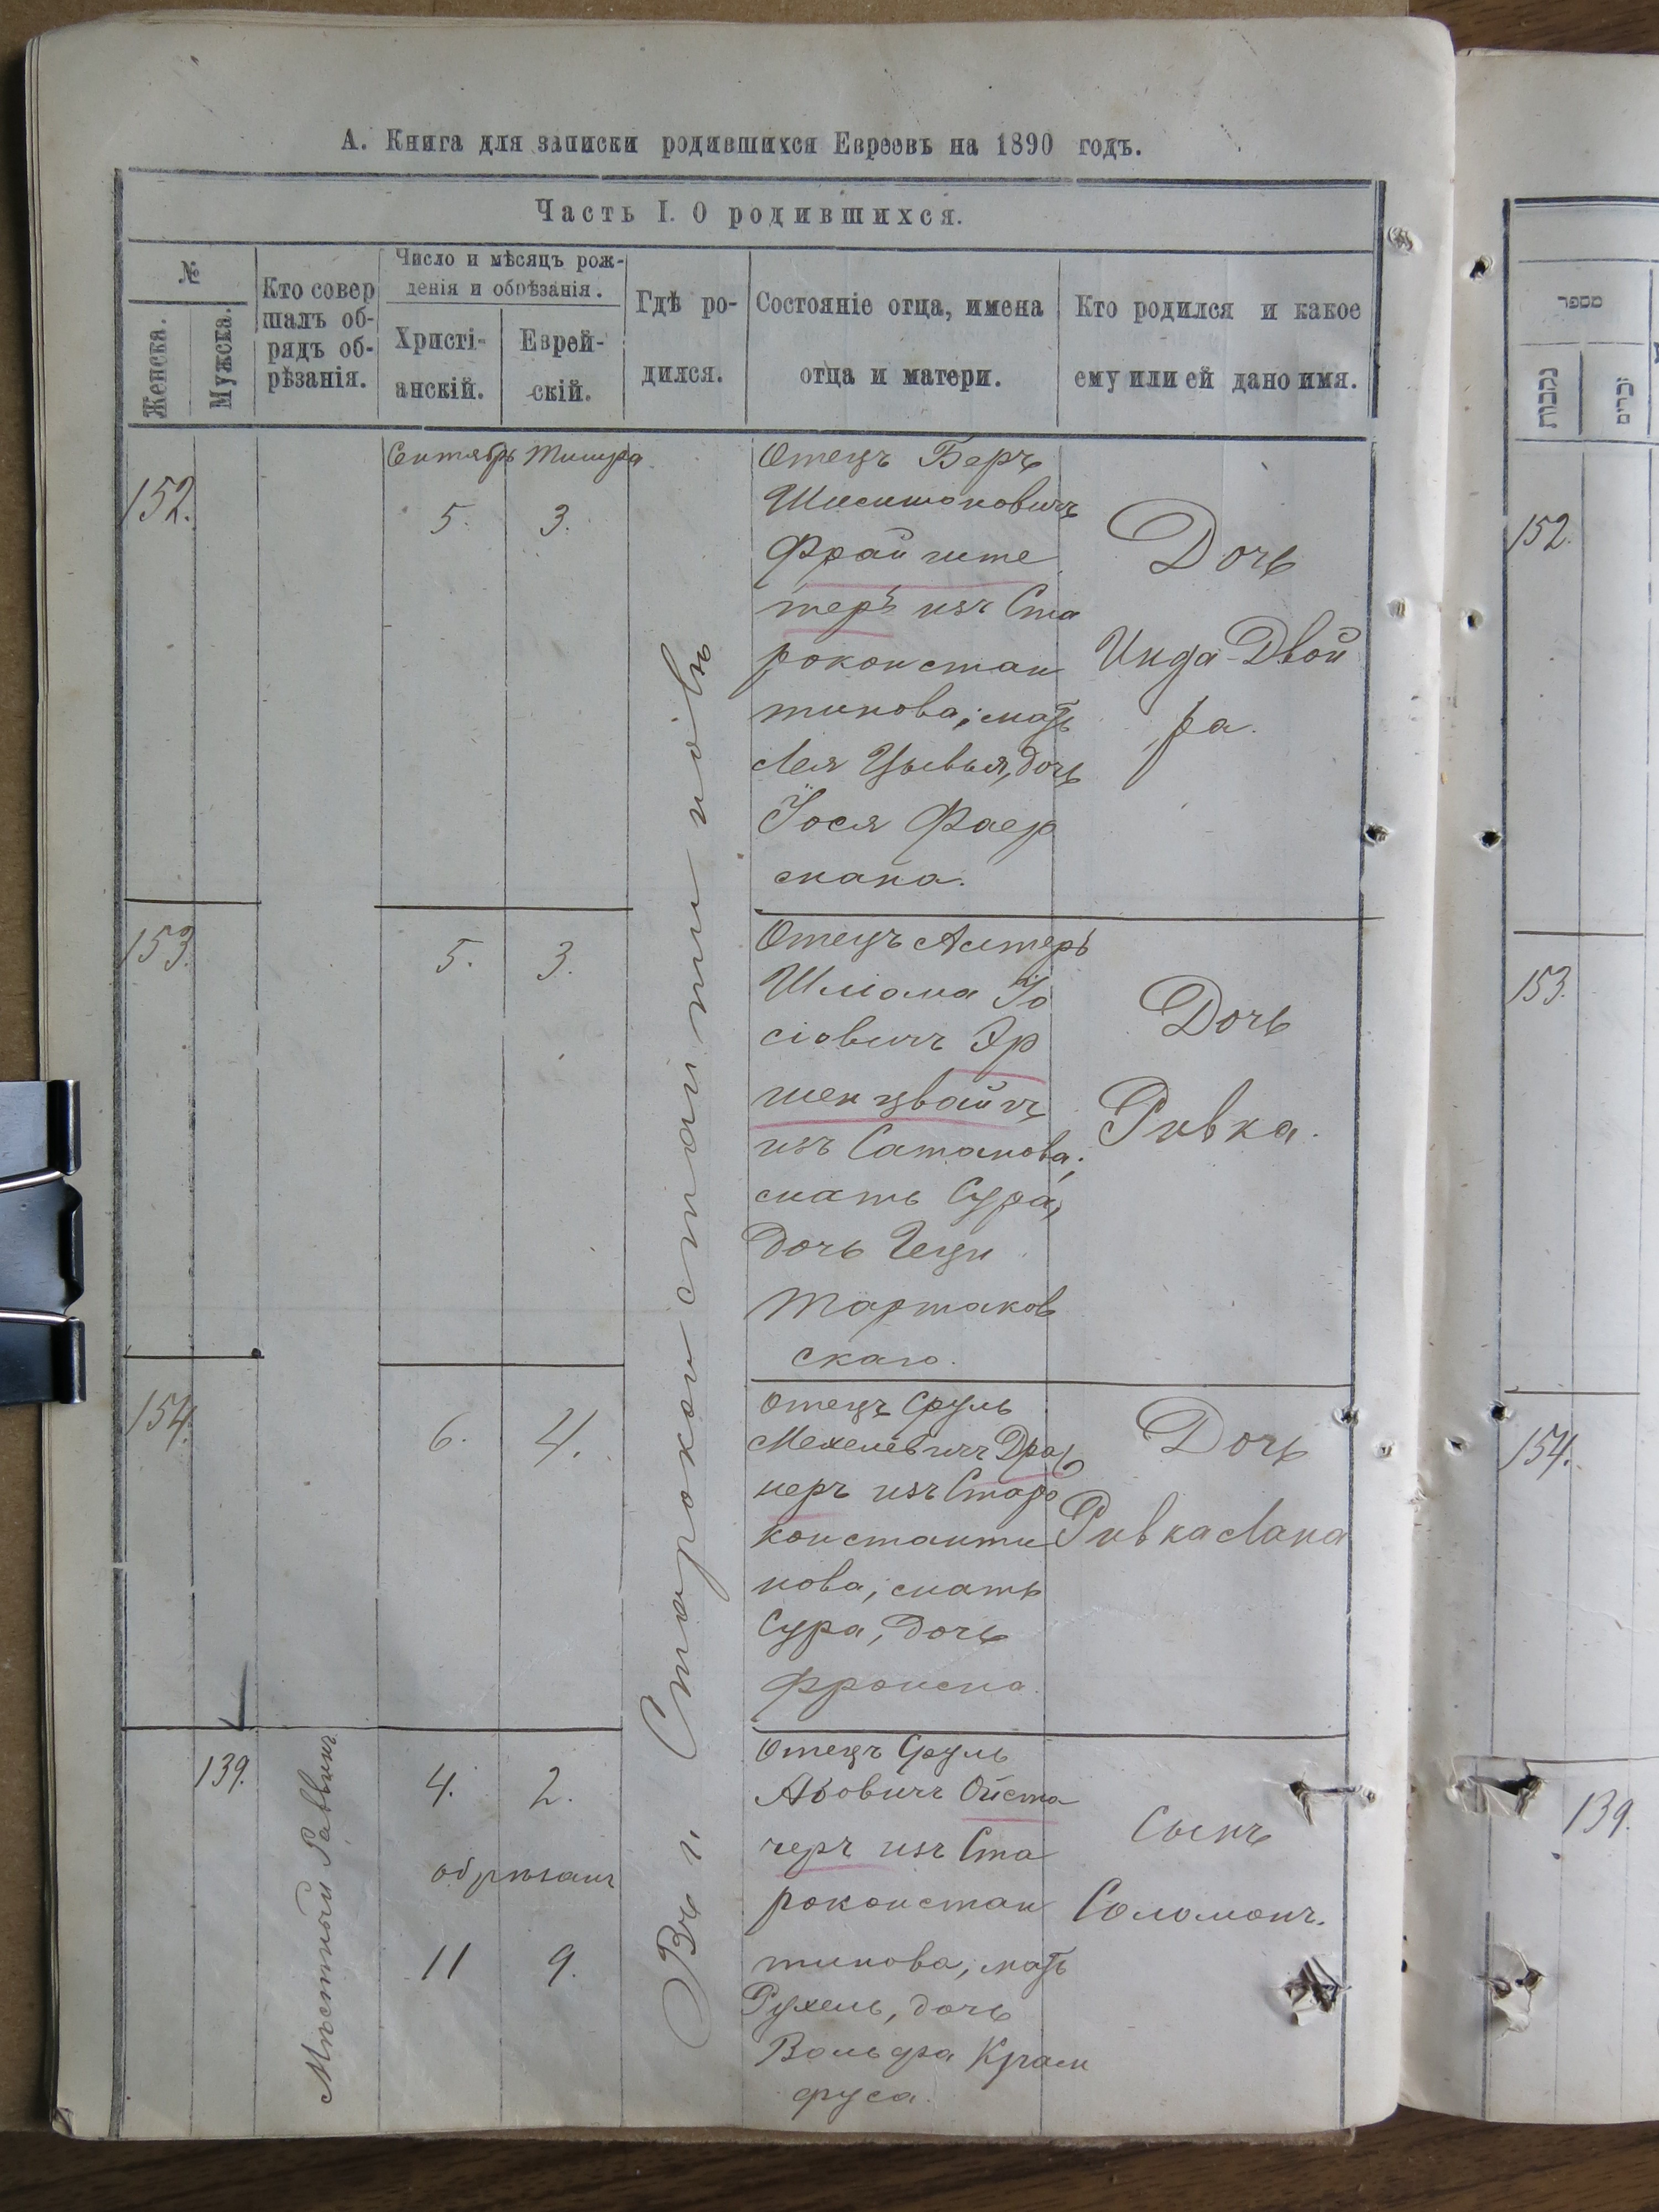 А. Книга для записки родившихся Евреевъ на 1890 годъ.
Часть I. О родившихся.
№
Женска.
Мужска.
Кто совер
шалъ об-
рядъ об-
рѣзанія.
Число и мѣсяцъ рож-
денія и обрѣзанія.
Христі-
анскій.
Еврей-
скій.
Гдѣ ро-
дился.
Состояніе отца, имена
отца и матери.
Кто родился и какое
ему или ей дано имя.
Въ г. Староконстантиновѣ
152.
Сентябрь Тишра
5. 3.
Отецъ Беръ
Фрайште
теръ изъ Ста
роконстан
тинова, мать
Лея Цывья, дочь
Іося Фаер
мана.
Дочь
Инда-Двой
ра.
153.
5. 3.
Отецъ Алтеръ
Шліома Іо
сіовичъ Эр
шенцвайгъ
изъ Сатанова;
мать Сура,
дочь Геци
Тартаков
скаго.
Дочь
Ривка.
154.
6. 4.
Отецъ Сруль
Мехелевичъ
неръ изъ Старо
константи
нова, мать
Сура, дочь
Фроима.
Дочь
Ривка Лана
139.
Мѣстный Раввинъ
4. 2.
обрѣзанъ
11 9.
Отецъ Сруль
Абовичъ Ойста
черъ изъ Ста
роконстан
тинова, мать
Рухель, дочь
Вольфа Крам
фуса.
Сынъ
Соломонъ.
מספר
נקבות
זכרים
152.
153.
154.
139.